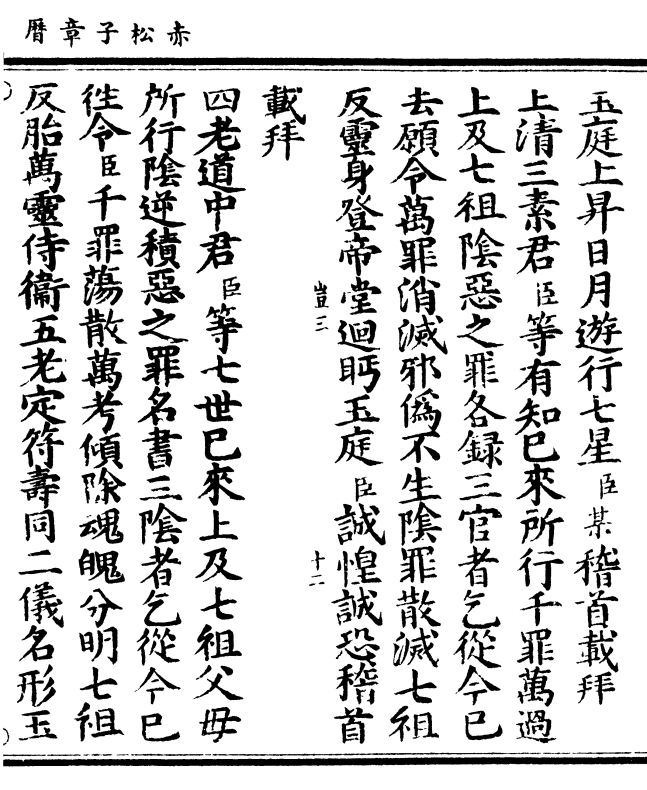 赤松子章曆
玉庭上昇日月遊行七星臣某稽首載拜
上清三素君臣等有知已來所行千罪萬過
上及七祖陰惡之罪各録三官者乞從今已
去願令萬罪消滅邪僞不生陰罪散滅七祖
反靈身登帝堂迴眄玉庭臣誠惶誠恐稽首
豈三
十二
載拜
四老道中君臣等七世已來上及七祖父母
所行陰逆積惡之罪名書三陰者乞從今已
徃令臣千罪蕩散萬考傾除魂魄分明七祖
反胎萬靈侍衞五老定符壽同二儀名形玉